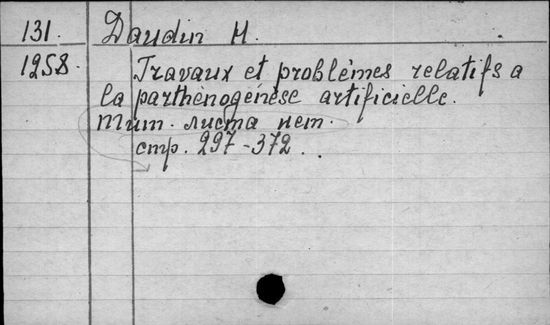 131. Daudin H.
1258. Travaux et problèmes relatifs a
la parthènogénèse artificielle.
тит. листа нет.
стр. 297-372.